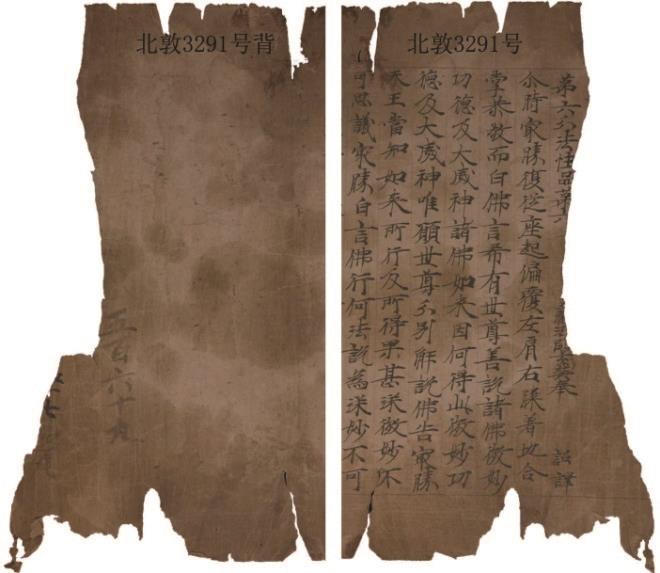 北敦3291号背
北敦3291号
第六分法性品第六
三藏法師玄奘奉 詔譯
尒時㝡勝復從座起偏覆左肩右膝著地合
掌恭敬而白佛言希有世尊善說諸佛微妙
功德及大威神諸佛如來因何得此微妙功
德及大威神唯願世尊分別解說佛告㝡勝
天王當知如來所行及所得果甚深微妙不
可思議㝡勝白言佛行何法說為深妙不可
五百六十九